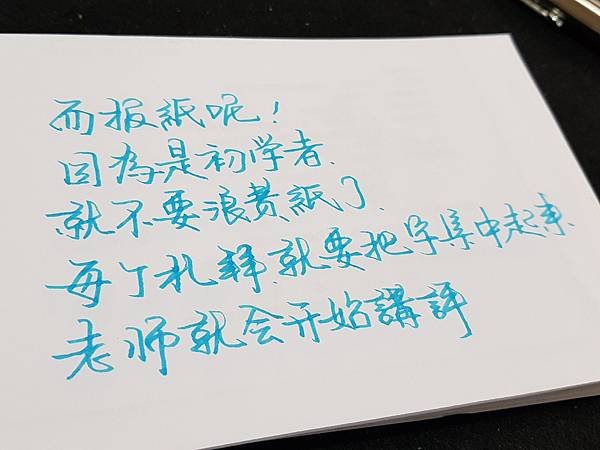 而报紙呢！
因為是初学者、
就不要浪費紙了、
每个礼拜、就要把字集中起来、
老师就会开始講評